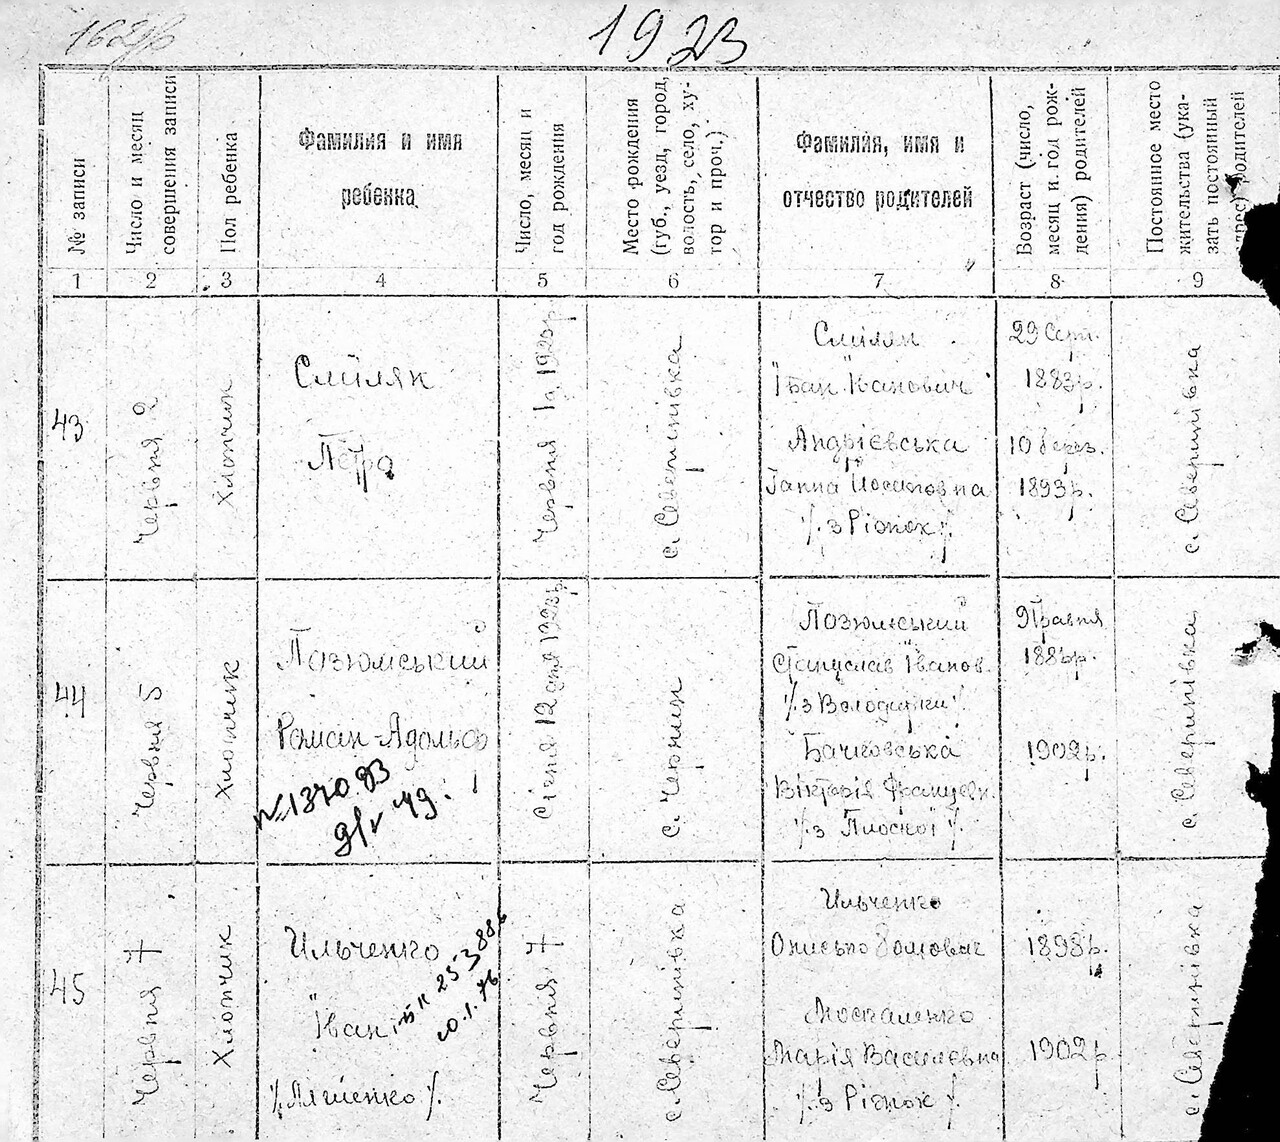 1923
№ записи
Число и месяц
совершения записи
Пол ребенка
Фамилия и имя
ребенка
Число, месяц и
год рождения
Место рождения
(губ., уезд, город,
волость, село, ху-
тор и проч.)
Фамилия, имя и
отчество родителей
Возраст (число,
месяц и год рож-
дения) родителей
Постоянное место
жительства (ука-
зать постоянный
родителей
1 2 3 4 5 6 7 8 9
43
Червня 2
Хлопчик
Сміляк
Петро
Червня 1го 1923р
с. Северинівка
Сміляк
Іван Іванович
Андрієвська
Ганна Йосиповна
/. з Ріпок /.
29 Серп.
1883р.
10 берез.
1893р.
с. Северинівка
44
Червня 5
Хлопчик
Позюмський
Роман-Адольф
№137083
49.
Січня 12 дня 1923р.
с. Чернин
Позюмський
Станіслав Іванов.
/. з Володимки /.
Бачковська
Вікторія Францевн.
/. з Плоскої /.
9 Травня
1902р.
с. Северинівка
45
Червня 7
Хлопчик
Ильченко
Іван
/. Ляшенко /.
Червня 7
с. Северинівка
Ильченко
Онисько Зомовач
Москаленко
Марія Василевна
/. з Ріпок /.
1898р.
1902р
с. Северинівка